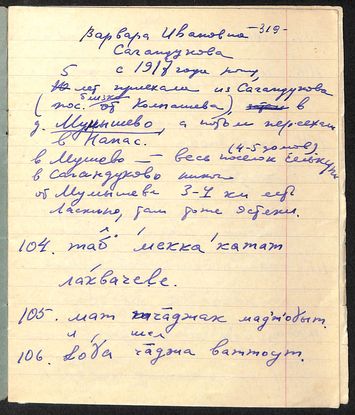 -319-
Варвара Ивановна
Сагандукова
с 1918 года рожд.
5 лет приехали из Сагандукова
(пос. близ Колпашева), в
д. Мумышево, а потом переехали
в Напас.
(4-5 домов)
в Мушево — весь поселок
в Сагандуково
от Мумышева 3-4 км есть
Ласкино, там тоже остяки.
104. таб мекка катат
лаквачеве.
105. мат чаджак маджобыт.
я шел
106. чаджа ваттоут.